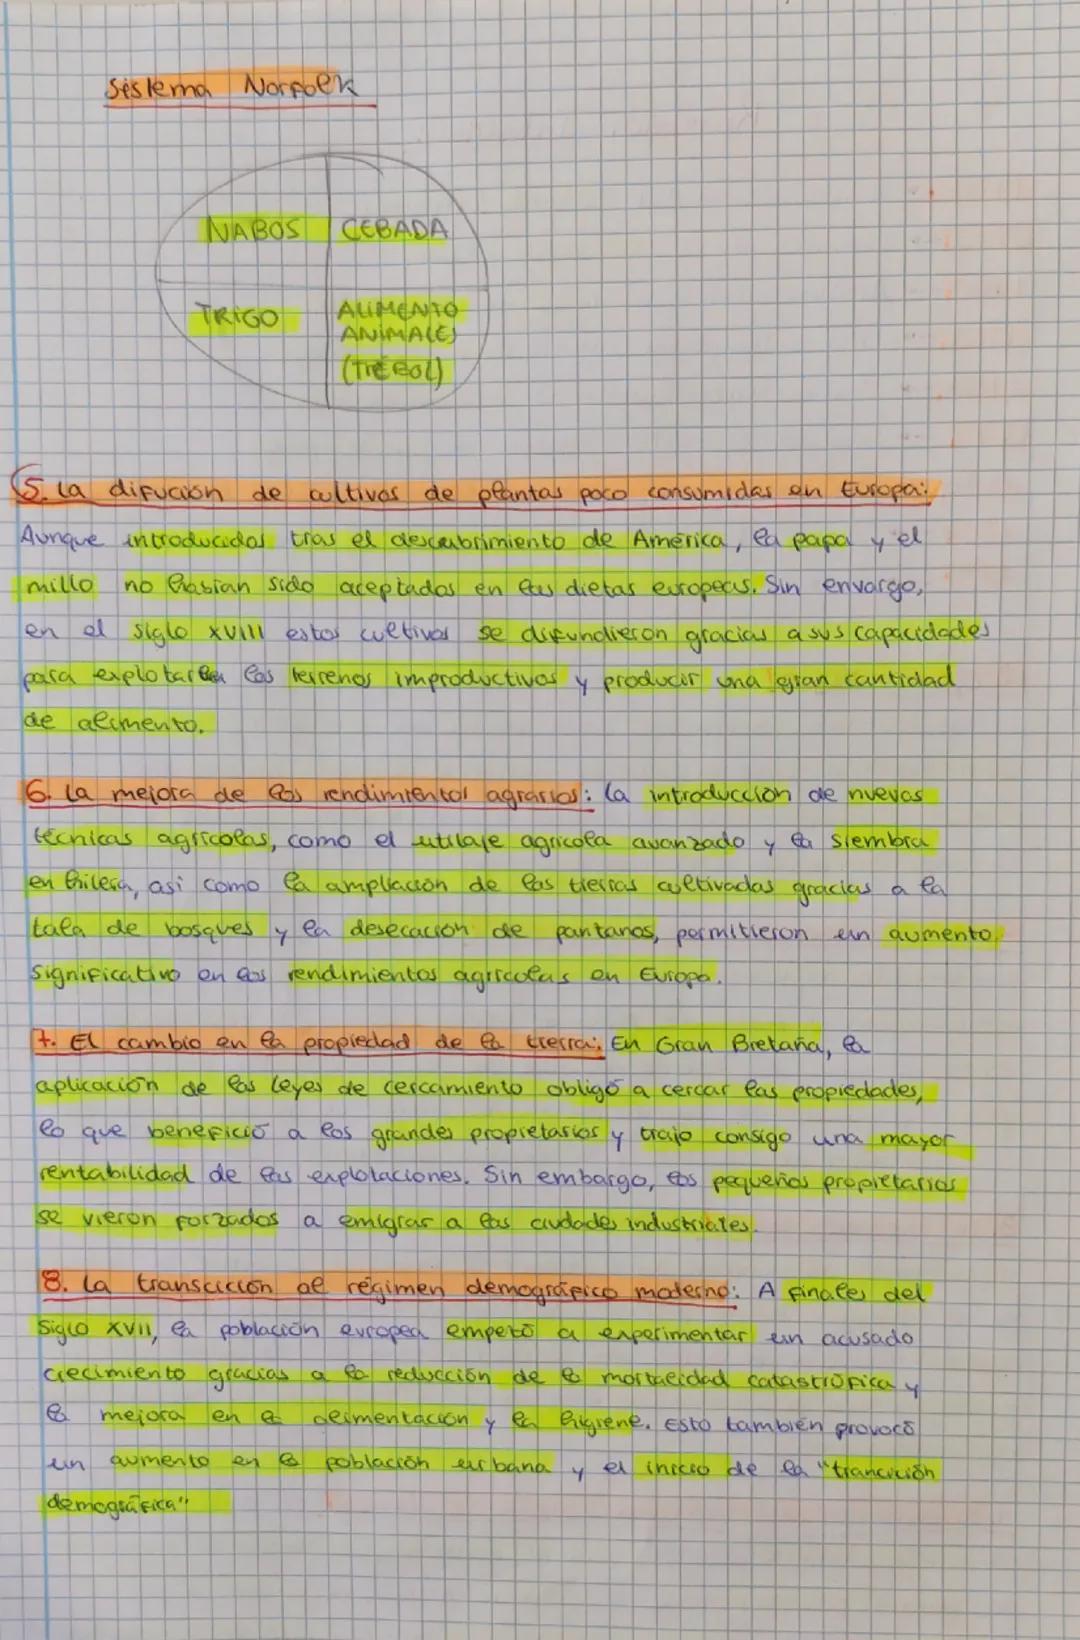 Sistema Norfolk
NABOS CEBADA
TRIGO ALIMENTO
ANIMALES
(TRÉBOL)
5. La difución de cultivos de plantas poco consumidas en Europa:
Aunque introducidos tras el descubrimiento de América, la papa y el
millo no habían sido aceptados en las dietas europeas. Sin envargo,
en el siglo XVIII estos cultivos se difundieron gracias a sus capacidades
para explotar los terrenos improductivos y producir una gran cantidad
de alimento.
6. La mejora de los rendimientos agrarios: La introducción de nuevas
técnicas agrícolas, como el utilaje agrícola avanzado y la siembra
en hilera, así como la ampliación de las tierras cultivadas gracias a la
tala de bosques y la desecación de pantanos, permitieron un aumento
significativo en los rendimientos agrícolas en Europa.
7. El cambio en la propiedad de la tierra: En Gran Bretaña, la
aplicación de las leyes de cercamiento obligó a cercar las propiedades,
lo que benefició a los grandes propietarios y trajo consigo una mayor
rentabilidad de las explotaciones. Sin embargo, los pequeños propietarios
se vieron forzados a emigrar a las ciudades industriales.
8. La transcición al régimen demográfico moderno: A finales del
Siglo XVII, la población europea empezó a experimentar un acusado
crecimiento gracias a la reducción de la mortalidad catastrófica y
la mejora en la alimentación y la higiene. Esto también provocó
un aumento en la población urbana y el inicio de la "trancición
demográfica"